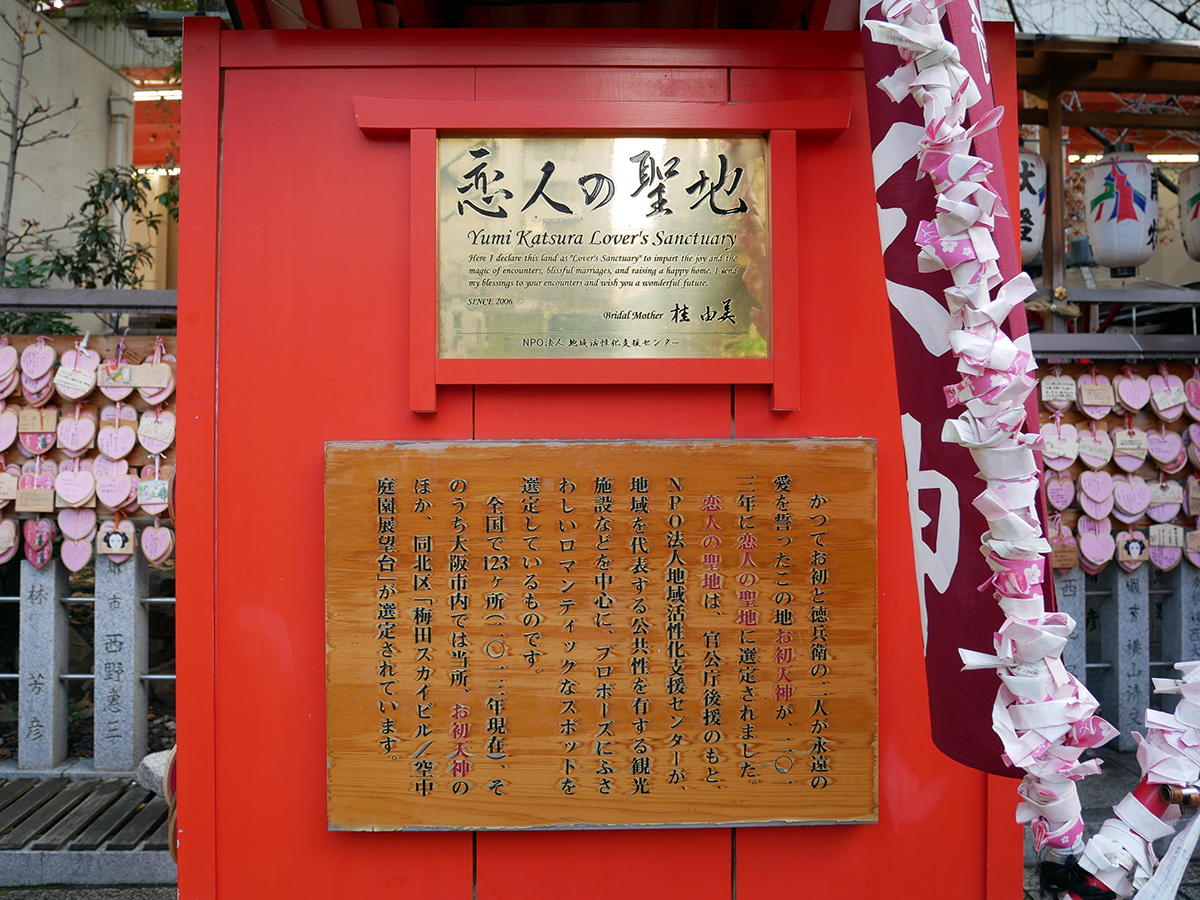 恋人の聖地
Yumi Katsura Lover's Sanctuary
Here I declare this land as "Lover's Sanctuary" to impart the joy and the
magic of encounters, blissful marriages, and raising a happy home. I send
my blessings to your encounters and wish you a wonderful future.
SINCE 2006
Bridal Mother 桂 由美
NPO法人 地域活性化支援センター
かつてお初と徳兵衛の二人が永遠の
愛を誓ったこの地お初天神が、二〇一
二年に恋人の聖地に選定されました。
恋人の聖地は、官公庁後援のもと、
NPO法人地域活性化支援センターが、
地域を代表する公共性を有する観光
施設などを中心に、プロポーズにふさ
わしいロマンティックなスポットを
選定しているものです。
全国で123ヶ所(二〇一二年現在)、そ
のうち大阪市内では当所、お初天神の
ほか、同北区「梅田スカイビル/空中
庭園展望台」が選定されています。
林 芳彦
西野恵三
神